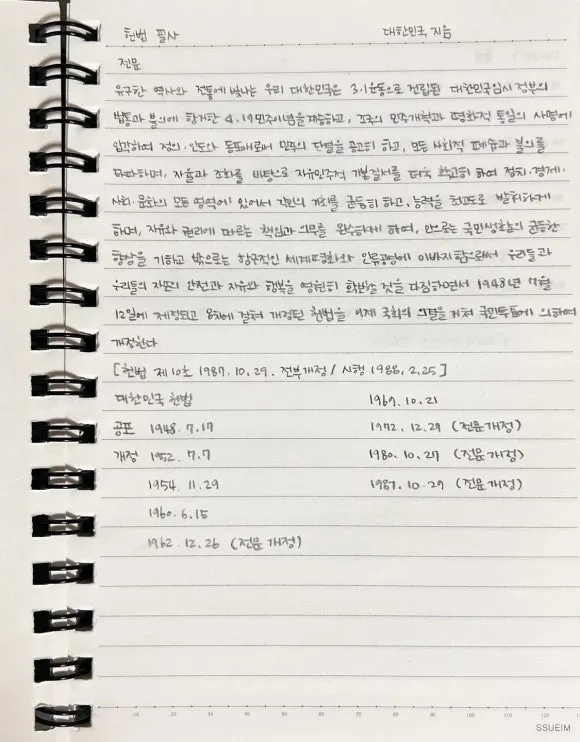 헌법 필사 대한민국 지음
전문
유구한 역사와 전통에 빛나는 우리 대한민국은 3.1운동으로 건립된 대한민국임시정부의
법통과 불의에 항거한 4.19민주이념을계승하고, 조국의 민주개혁과 평화적 통일의 사명에
입각하여 정의·인도와 동포애로써 민족의 단결을 공고히 하고, 모든 사회적 폐습과 불의를
타파하며, 자율과 조화를 바탕으로 자유민주적 기본질서를 더욱 확고히 하여 정치·경제·
사회·문화의 모든 영역에 있어서 각인의 기회를 균등히 하고, 능력을 최고도로 발휘하게
하며, 자유와 권리에 따르는 책임과 의무를 완수하게 하여, 안으로는 국민생활의 균등한
향상을 기하고 밖으로는 항구적인 세계평화와 인류공영에 이바지함으로써 우리들과
우리들의 자손의 안전과 자유와 행복을 영원히 확보할 것을 다짐하면서 1948년 7월
12일에 제정되고 8차에 걸쳐 개정된 헌법을 이제 국회의 의결을 거쳐 국민투표에 의하여
개정한다
[헌법 제10호 1987.10.29. 전부개정 / 시행 1988.2.25]
대한민국 헌법 1969.10.21
공포 1948.7.17 1972.12.27 (전문개정)
개정 1952.7.7 1980.10.27 (전문개정)
1954.11.29 1987.10.29 (전문개정)
1960.6.15
1962.12.26 (전문개정)
10 20 30 40 50 60 70 80 90 100 110 120
SSUEIM